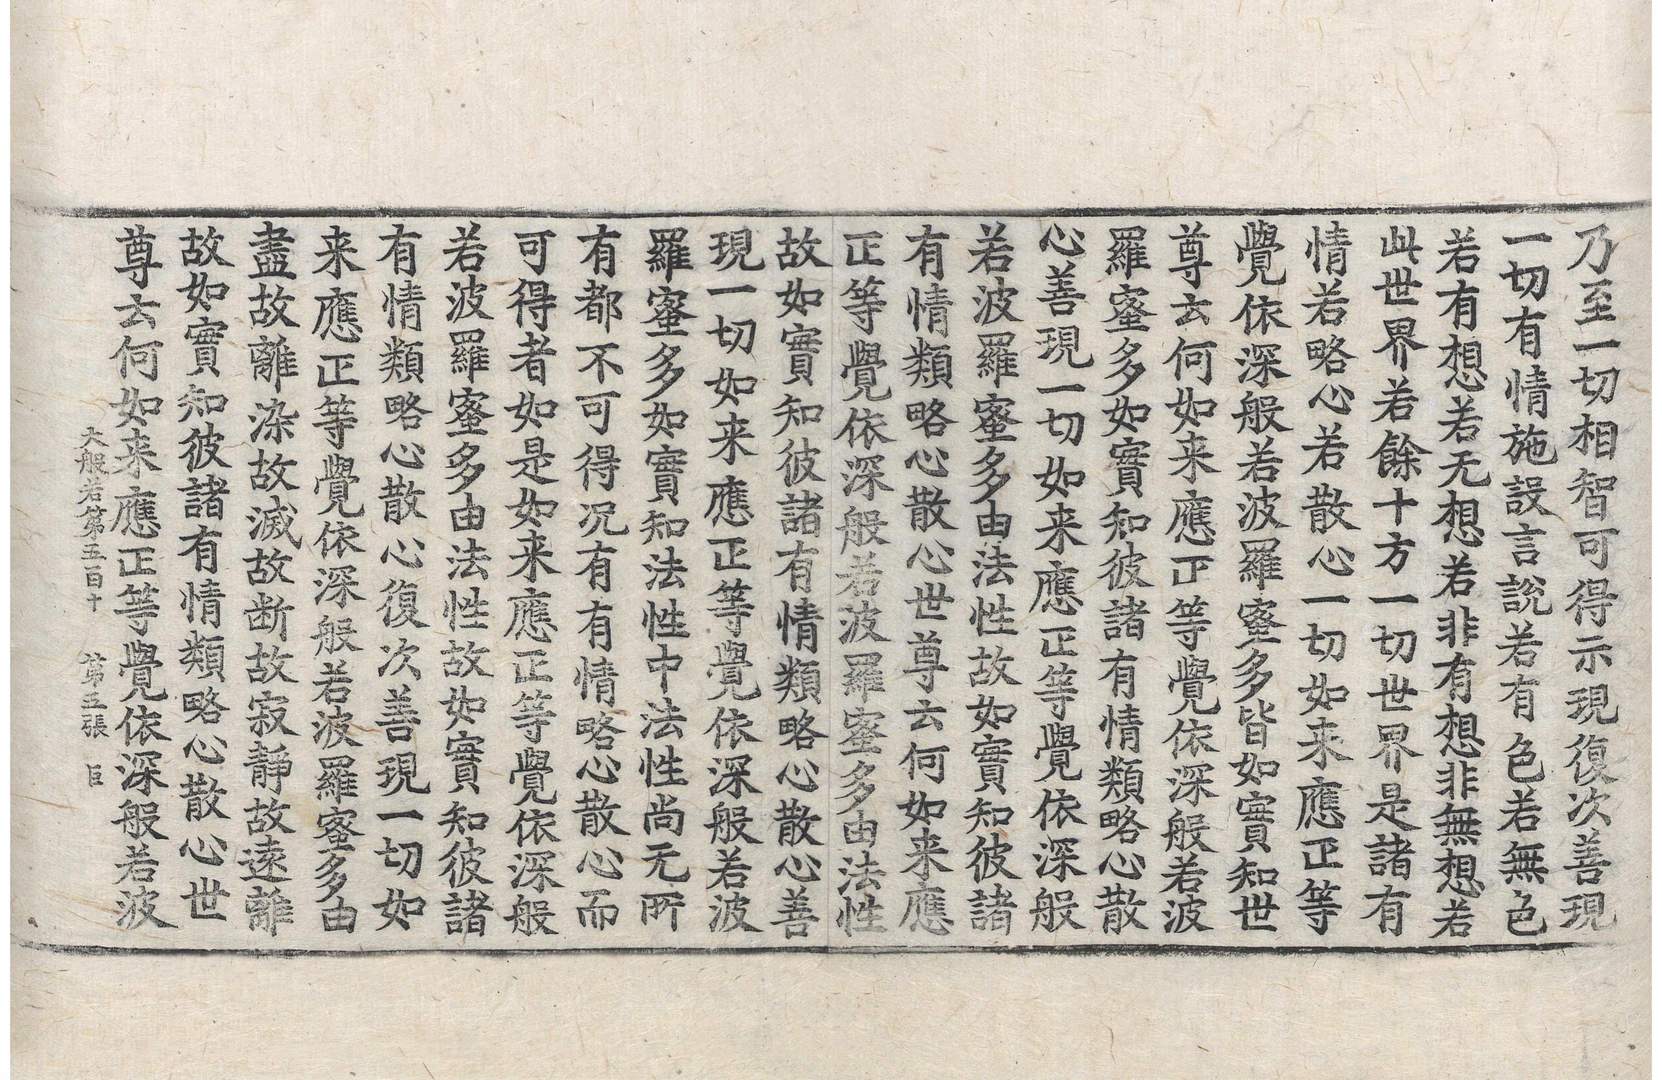 乃至一切相智可得示現復次善現
一切有情施設言說若有色若無色
若有想若无想若非有想非無想若
此世界若餘十方一切世界是諸有
情若略心若散心一切如来應正等
覺依深般若波羅蜜多皆如實知世
尊云何如来應正等覺依深般若波
羅蜜多如實知彼諸有情類略心散
心善現一切如来應正等覺依深般
若波羅蜜多由法性故如實知彼諸
有情類略心散心世尊云何如来應
正等覺依深般若波羅蜜多由法性
故如實知彼諸有情類略心散心善
現一切如来應正等覺依深般若波
羅蜜多如實知法性中法性尚无所
有都不可得况有有情略心散心而
可得者如是如来應正等覺依深般
若波羅蜜多由法性故如實知彼諸
有情類略心散心復次善現一切如
来應正等覺依深般若波羅蜜多由
盡故離染故滅故断故寂靜故遠離
故如實知彼諸有情類略心散心世
尊云何如来應正等覺依深般若波
大般若第五百十 第五張 臣